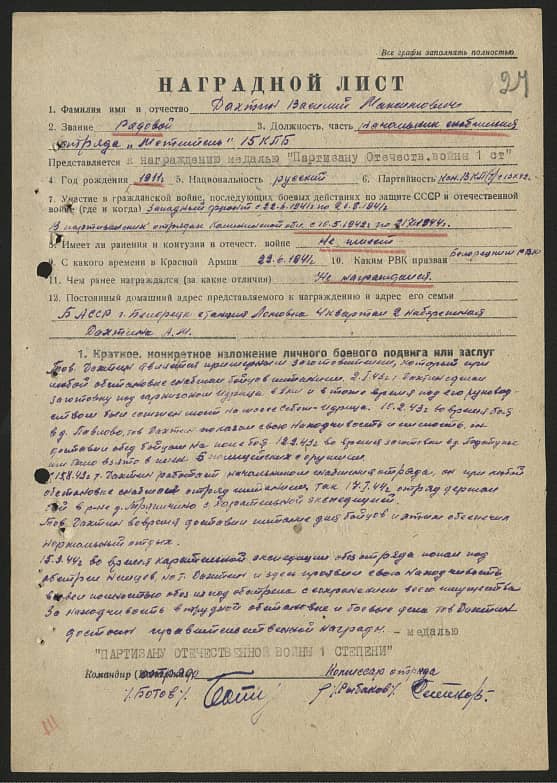 Все графы заполнять полностью
27
НАГРАДНОЙ ЛИСТ
1. Фамилия имя и отчество Дахтин Василий Максимович
2. Звание Рядовой 3. Должность, часть начальник снабжения
отряда „Мститель" 15 КПБ
Представляется к награждению медалью "Партизану Отечеств.войны 1 ст"
4. Год рождения 1911 г. 5. Национальность русский 6. Партийность
7. Участие в гражданской войне, последующих боевых действиях по защите СССР и отечественной
войне (где и когда) Западный фронт с 22.6.1941 г. по 20.8.1941 г.
В партизанских отрядах Калининской обл. с 10.5.1942 г. по 21.7.1944 г.
8. Имеет ли ранения и контузия в отечест. войне Не имеет
9. С какого времени в Красной Армии 22.6.1941 10. Каким РВК призван Белорецким РВК
11. Чем ранее награждался (за какие отличия) Не награждался
12. Постоянный домашний адрес представляемого к награждению и адрес его семьи
БАССР г. Белорецк станция Ломовка 4 квартал 2 Набережная
Дахтина А.М.
1. Краткое, конкретное изложение личного боевого подвига или заслуг
Тов. Дахтин является примерным заготовителем, который при
любой обстановке снабжал бойцов питанием. 2.5.43 г. Дахтин делал
заготовку под гарнизоном Идрица в 6 км и в то же время под его руковод-
ством был сожжен мост на шоссе Себеж-Идрица. 10.2.43 г. во время боя
в д. Павлово, тов Дахтин показал свою находчивость и смелость, он
доставил обед бойцам на поле боя 12.2.43 г. во время заготовки
им было взято в плен 5 полицейских с оружием.
С 15.8.43 г. т. Дахтин работает начальником снабжения отряда, он при любой
обстановке снабжал отряд питанием, так 17.7.44 г. отряд держал
бой в р-не д. с карательной экспедицией.
Тов. Дахтин вовремя доставил питание для бойцов и этим обеспечил
нормальный отдых.
15.3.44 г. во время карательной экспедиции обоз отряда попал под
обстрел немцев, но т. Дахтин и здесь проявил свою находчивость
вывел полностью обоз из под обстрела с сохранением всего имущества
За находчивость в трудной обстановке и боевые дела тов Дахтин
достоин правительственной награды. — медалью
"ПАРТИЗАНУ ОТЕЧЕСТВЕННОЙ ВОЙНЫ 1 СТЕПЕНИ"
Командир отряда Комиссар отряда
/Ботов/ /Рыбаков/